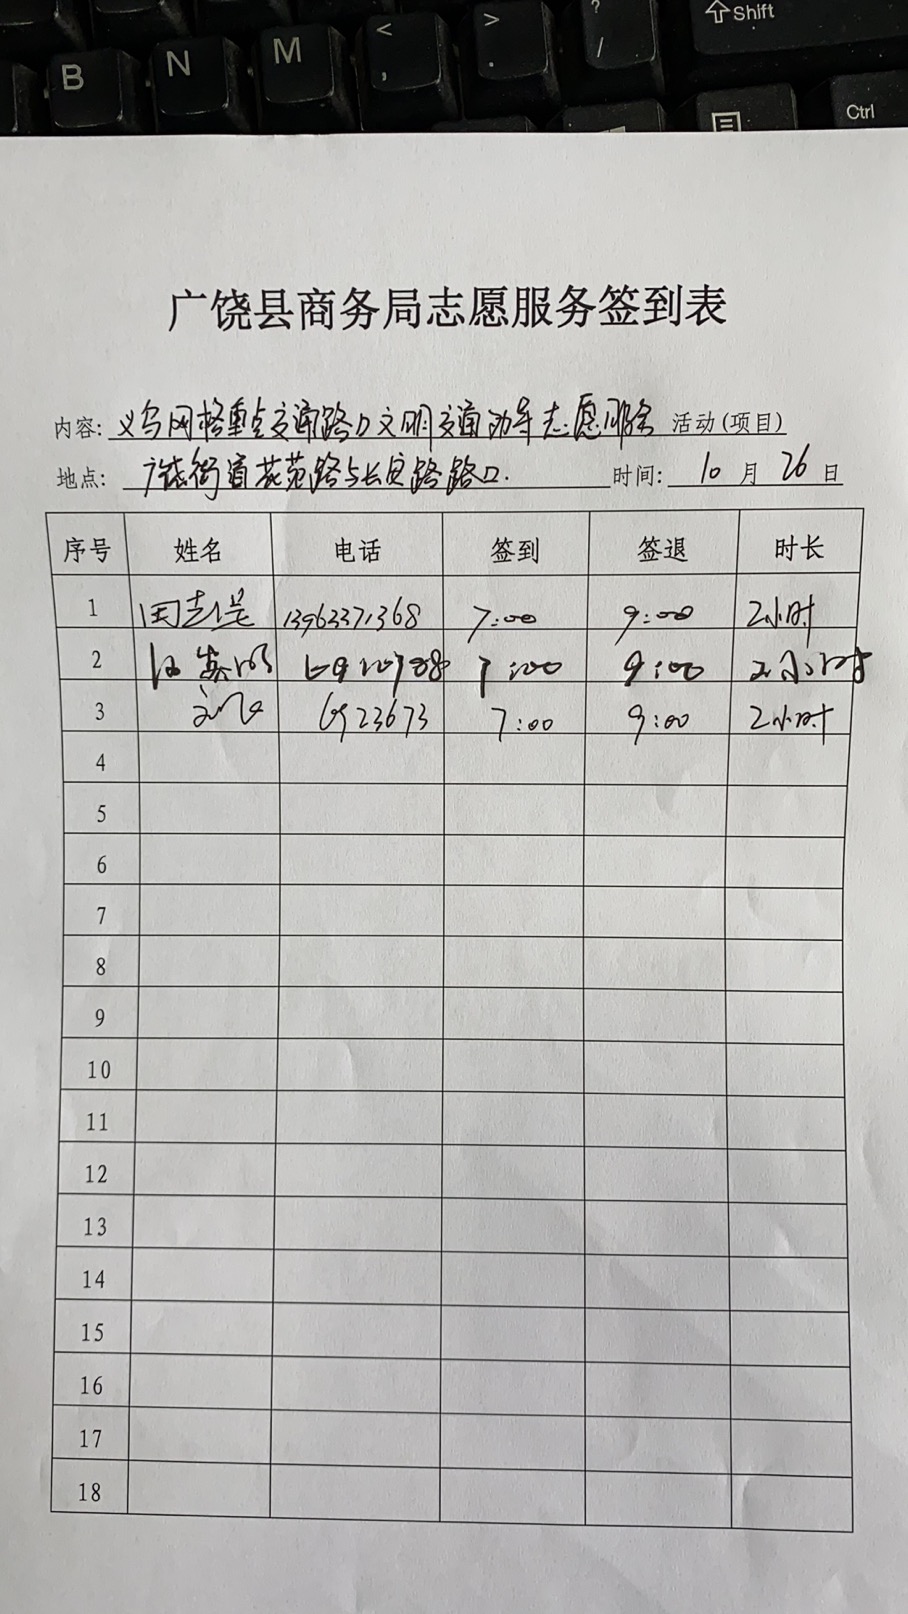 B N M < , > . ? / ⇧Shift
Ctrl
广饶县商务局志愿服务签到表
内容: 义乌网格重点交通路口文明交通劝导志愿服务 活动(项目)
地点: 广饶街道花苑路与长安路路口. 时间: 10 月 26 日
序号 姓名 电话 签到 签退 时长
1 13963371368 7:00 9:00 2小时
2 7:00 9:00 2小时
3 6923673 7:00 9:00 2小时
4
5
6
7
8
9
10
11
12
13
14
15
16
17
18